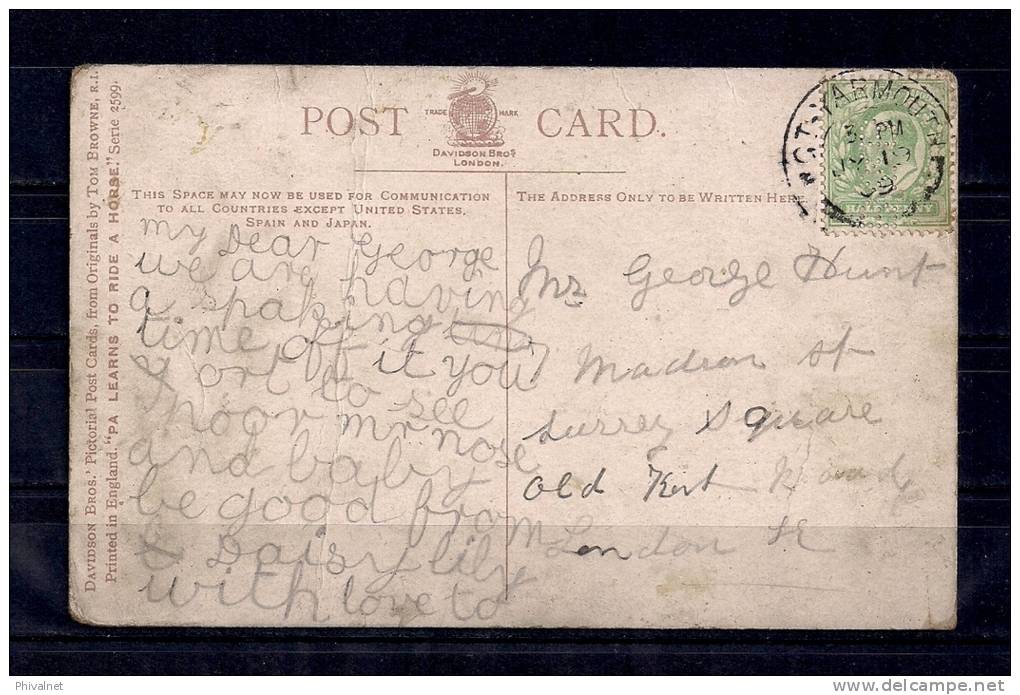 DAVIDSON BROS.' Pictorial Post Cards, from Originals by TOM BROWNE, R.I.
Printed in England. "PA LEARNS TO RIDE A HORSE." Serie 2599.
POST CARD.
TRADE MARK
DAVIDSON BROS
LONDON.
THIS SPACE MAY NOW BE USED FOR COMMUNICATION
TO ALL COUNTRIES EXCEPT UNITED STATES,
SPAIN AND JAPAN.
THE ADDRESS ONLY TO BE WRITTEN HERE.
YARMOUTH
PM
09
my Dear George
we are having
a spaking
time off it you
ort to see
poor mr nose
and baby
be good from
& Daisy lily
with love to
Mr George Hunt
7 Madron St
Surrey Square
Old Kent Road
London SE
Phivalnet
www.delcampe.net